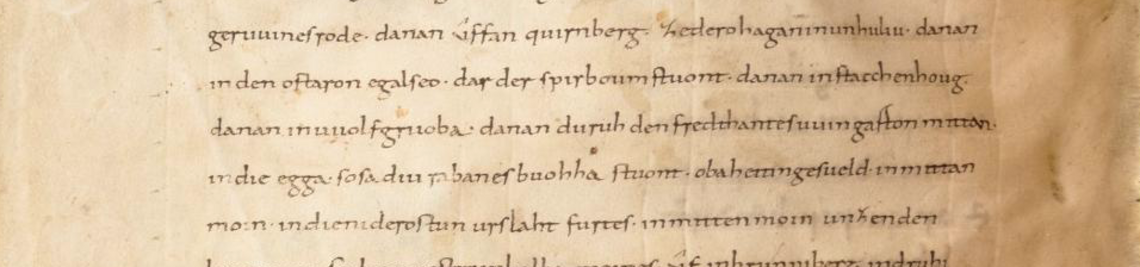 geruuines rode · danan ûffan quirnberg · ze dero haganinun huliu · danan
in den ostaron egalseo · dar der spirboum stuont · danan in stacchenhoug
danan in uuolfgruoba · danan duruh den fredthantes uuingarton mittan ·
in die egga · sosa diu rabanes buohha stuont · oba heitingesueld · in mittan
moin · in die niderostun urslaht furtes · in mitten moin unzen den
ûf in brunniberg